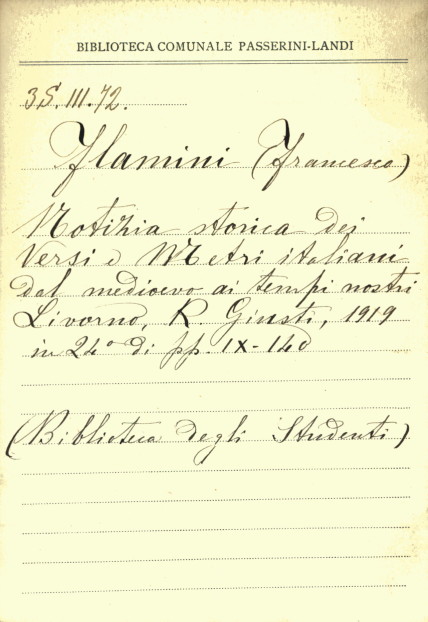 BIBLIOTECA COMUNALE PASSERINI-LANDI
3S.III.72.
Flamini (Francesco)
Notizia storica dei
Versi e Metri italiani
dal medioevo ai tempi nostri
Livorno, R. Giusti, 1919
in 24° di pp. IX-140
(Biblioteca degli Studenti)